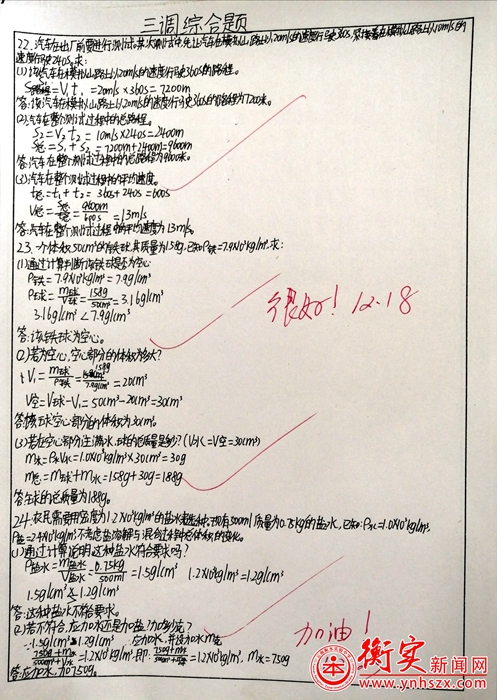 三调综合题
22. 汽车在出厂前要进行测试,某次测试中,先让汽车在模拟山路上以20m/s的速度行驶360s,紧接着在模拟山路上以10m/s的
速度行驶240s,求:
(1)该汽车在模拟山路上以20m/s的速度行驶360s的路程。
=V₁t₁=20m/s×360s=7200m
答:该汽车在模拟山路上以20m/s的速度行驶360s的路程为7200米。
(2)汽车在整个测试过程中的总路程。
S₂=V₂t₂=10m/s×240s=2400m
S总=S₁+S₂=7200m+2400m=9600m
答:汽车在整个测试过程中的总路程为9600米。
(3)汽车在整个测试过程中的平均速度。
t总=t₁+t₂=360s+240s=600s
V总=S总/t总=9600m/600s=13m/s
答:汽车在整个测试过程中的平均速度为13m/s。
23. 一个体积50cm³的铁球,其质量为158g,已知ρ铁=7.9×10³kg/m³,求:
(1)通过计算判断该铁球是否为空心
ρ铁=7.9×10³kg/m³=7.9g/cm³
ρ球=m球/V球=158g/50cm³=3.16g/cm³
3.16g/cm³<7.9g/cm³
答:该铁球为空心。
很好! 12.18
(2)若为空心,空心部分的体积为多大?
V₁=m球/ρ铁=158g/7.9g/cm³=20cm³
V空=V球-V₁=50cm³-20cm³=30cm³
答:铁球空心部分的体积为30cm³。
(3)若在空心部分注满水,球的总质量是多少?(V水=V空=30cm³)
m水=ρ水V水=1.0×10³kg/m³×30cm³=30g
m总=m球+m水=158g+30g=188g
答:球的总质量为188g。
24. 农民需要用密度为1.2×10³kg/m³的盐水选种,现有500ml质量为0.75kg的盐水,已知:ρ水=1.0×10³kg/m³,
ρ盐=2.4×10³kg/m³不考虑盐溶解与混合过程中总体积的变化。
(1)通过计算说明,这种盐水符合要求吗?
ρ盐水=m盐水/V盐水=0.75kg/500ml=1.5g/cm³ 1.2×10³kg/m³=1.2g/cm³
1.5g/cm³>1.2g/cm³
答:这种盐水不符合要求。
(2)若不符合,应加水还是加盐?加多少克?
∵1.5g/cm³>1.2g/cm³ ∴应加水,并设加水m克
=1.2×10³kg/m³,即: =1.2×10³kg/m³, m水=750g
答:应加水,加750g。
加油!
衡实新闻网
www.ynhszx.com